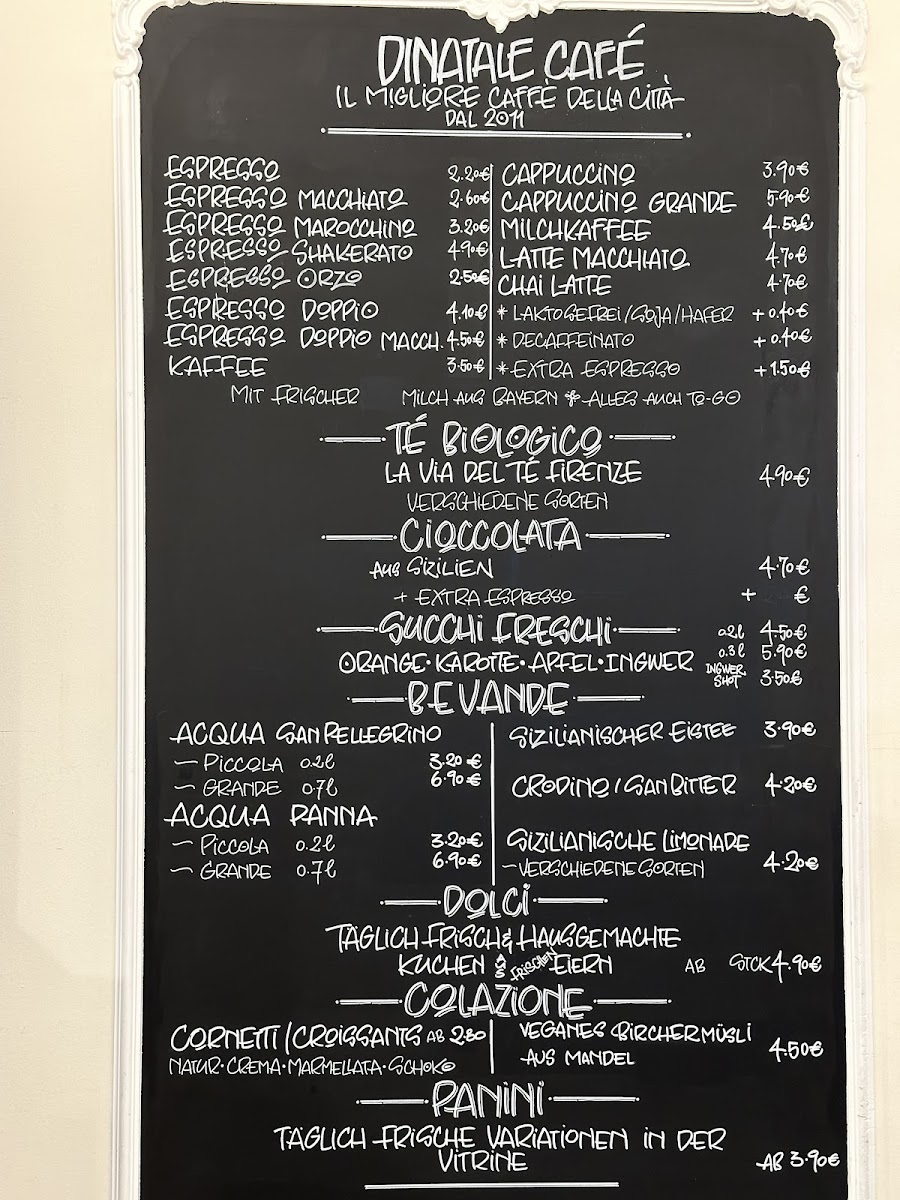 DINATALE CAFÉ
IL MIGLIORE CAFFÈ DELLA CITTÀ
DAL 2011
ESPRESSO 2.20€
ESPRESSO MACCHIATO 2.60€
ESPRESSO MAROCCHINO 3.20€
ESPRESSO SHAKERATO 4.90€
ESPRESSO ORZO 2.50€
ESPRESSO DOPPIO 4.10€
ESPRESSO DOPPIO MACCH. 4.50€
KAFFEE 3.50€
CAPPUCCINO 3.90€
CAPPUCCINO GRANDE 5.90€
MILCHKAFFEE 4.50€
LATTE MACCHIATO 4.70€
CHAI LATTE 4.70€
* LAKTOSEFREI/SOJA/HAFER + 0.40€
* DECAFFEINATO + 0.40€
* EXTRA ESPRESSO + 1.50€
MIT FRISCHER MILCH AUS BAYERN & ALLES AUCH TO-GO
TÉ BIOLOGICO
LA VIA DEL TÉ FIRENZE 4.90€
VERSCHIEDENE SORTEN
CIOCCOLATA
AUS SIZILIEN 4.70€
+ EXTRA ESPRESSO + €
SUCCHI FRESCHI 0.2l 4.50€
0.3l 5.90€
ORANGE·KAROTTE·APFEL·INGWER INGWER SHOT 3.50€
BEVANDE
ACQUA SAN PELLEGRINO
~ PICCOLA 0.2l 3.20€
~ GRANDE 0.7l 6.90€
ACQUA PANNA
~ PICCOLA 0.2l 3.20€
~ GRANDE 0.7l 6.90€
SIZILIANISCHER EISTEE 3.90€
CRODINO/SANBITTER 4.20€
SIZILIANISCHE LIMONADE
~VERSCHIEDENE SORTEN 4.20€
DOLCI
TÄGLICH FRISCH & HAUSGEMACHTE
KUCHEN AUS FRISCHEN EIERN AB STCK 4.90€
COLAZIONE
CORNETTI/CROISSANTS AB 2.80
NATUR·CREMA·MARMELLATA·SCHOKO
VEGANES BIRCHERMÜSLI
AUS MANDEL 4.50€
PANINI
TÄGLICH FRISCHE VARIATIONEN IN DER
VITRINE AB 3.90€